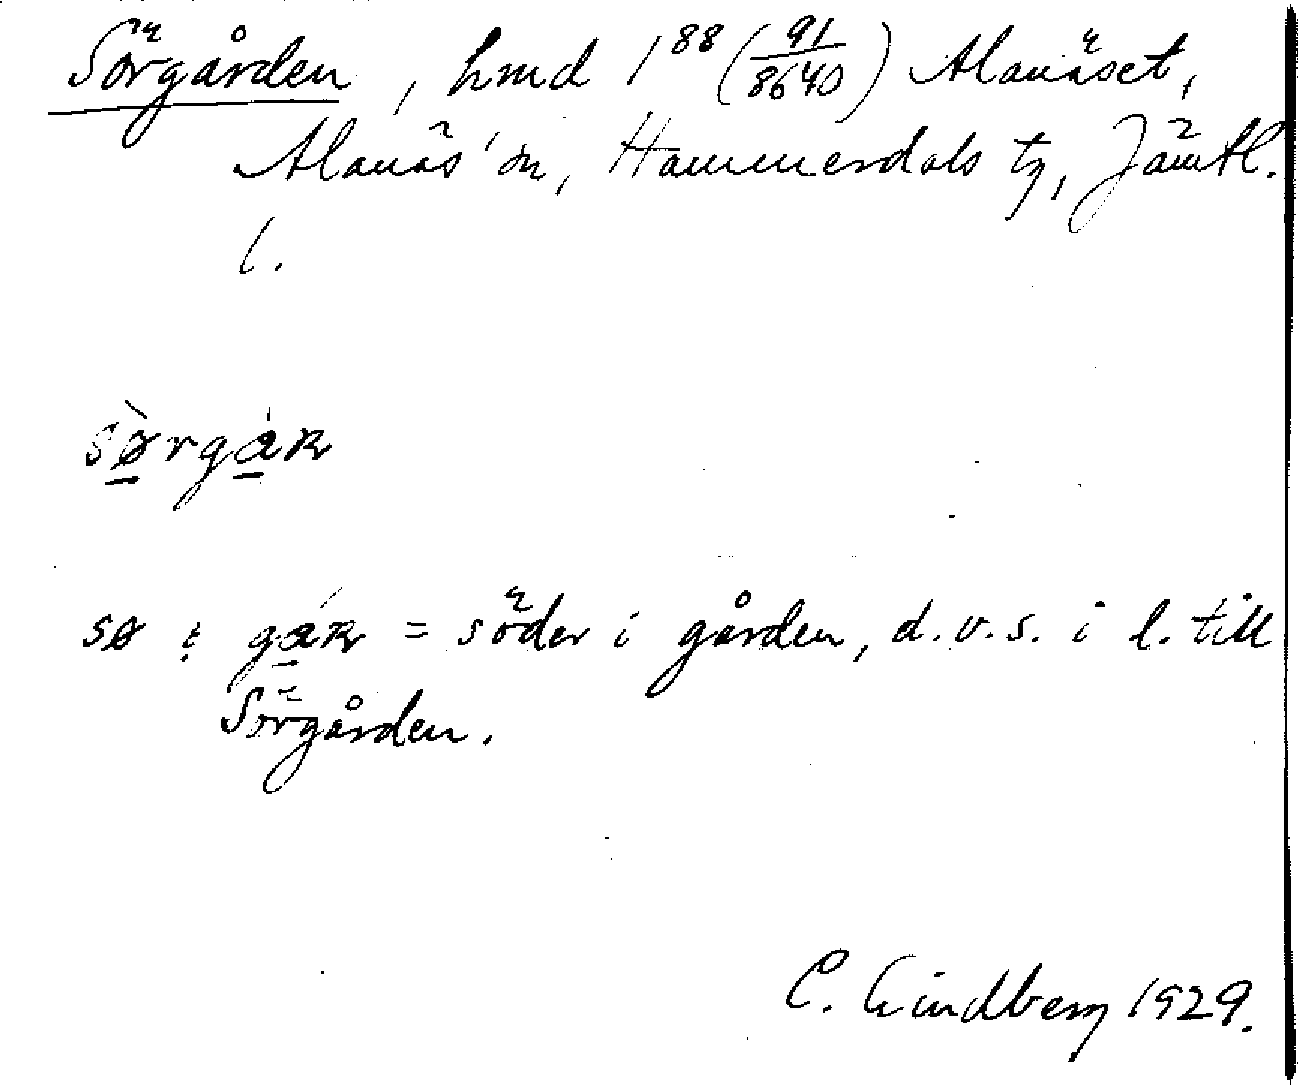 Sörgården, hmd 1⁸⁸ (91/8640) Alanäset,
Alanäs' sn, Hammerdals tg, Jämtl.
l.
sø̀rgá̱n
sø i gá̱n = söder i gården, d.v.s. i l. till
Sörgården.
C. Lindberg 1929.